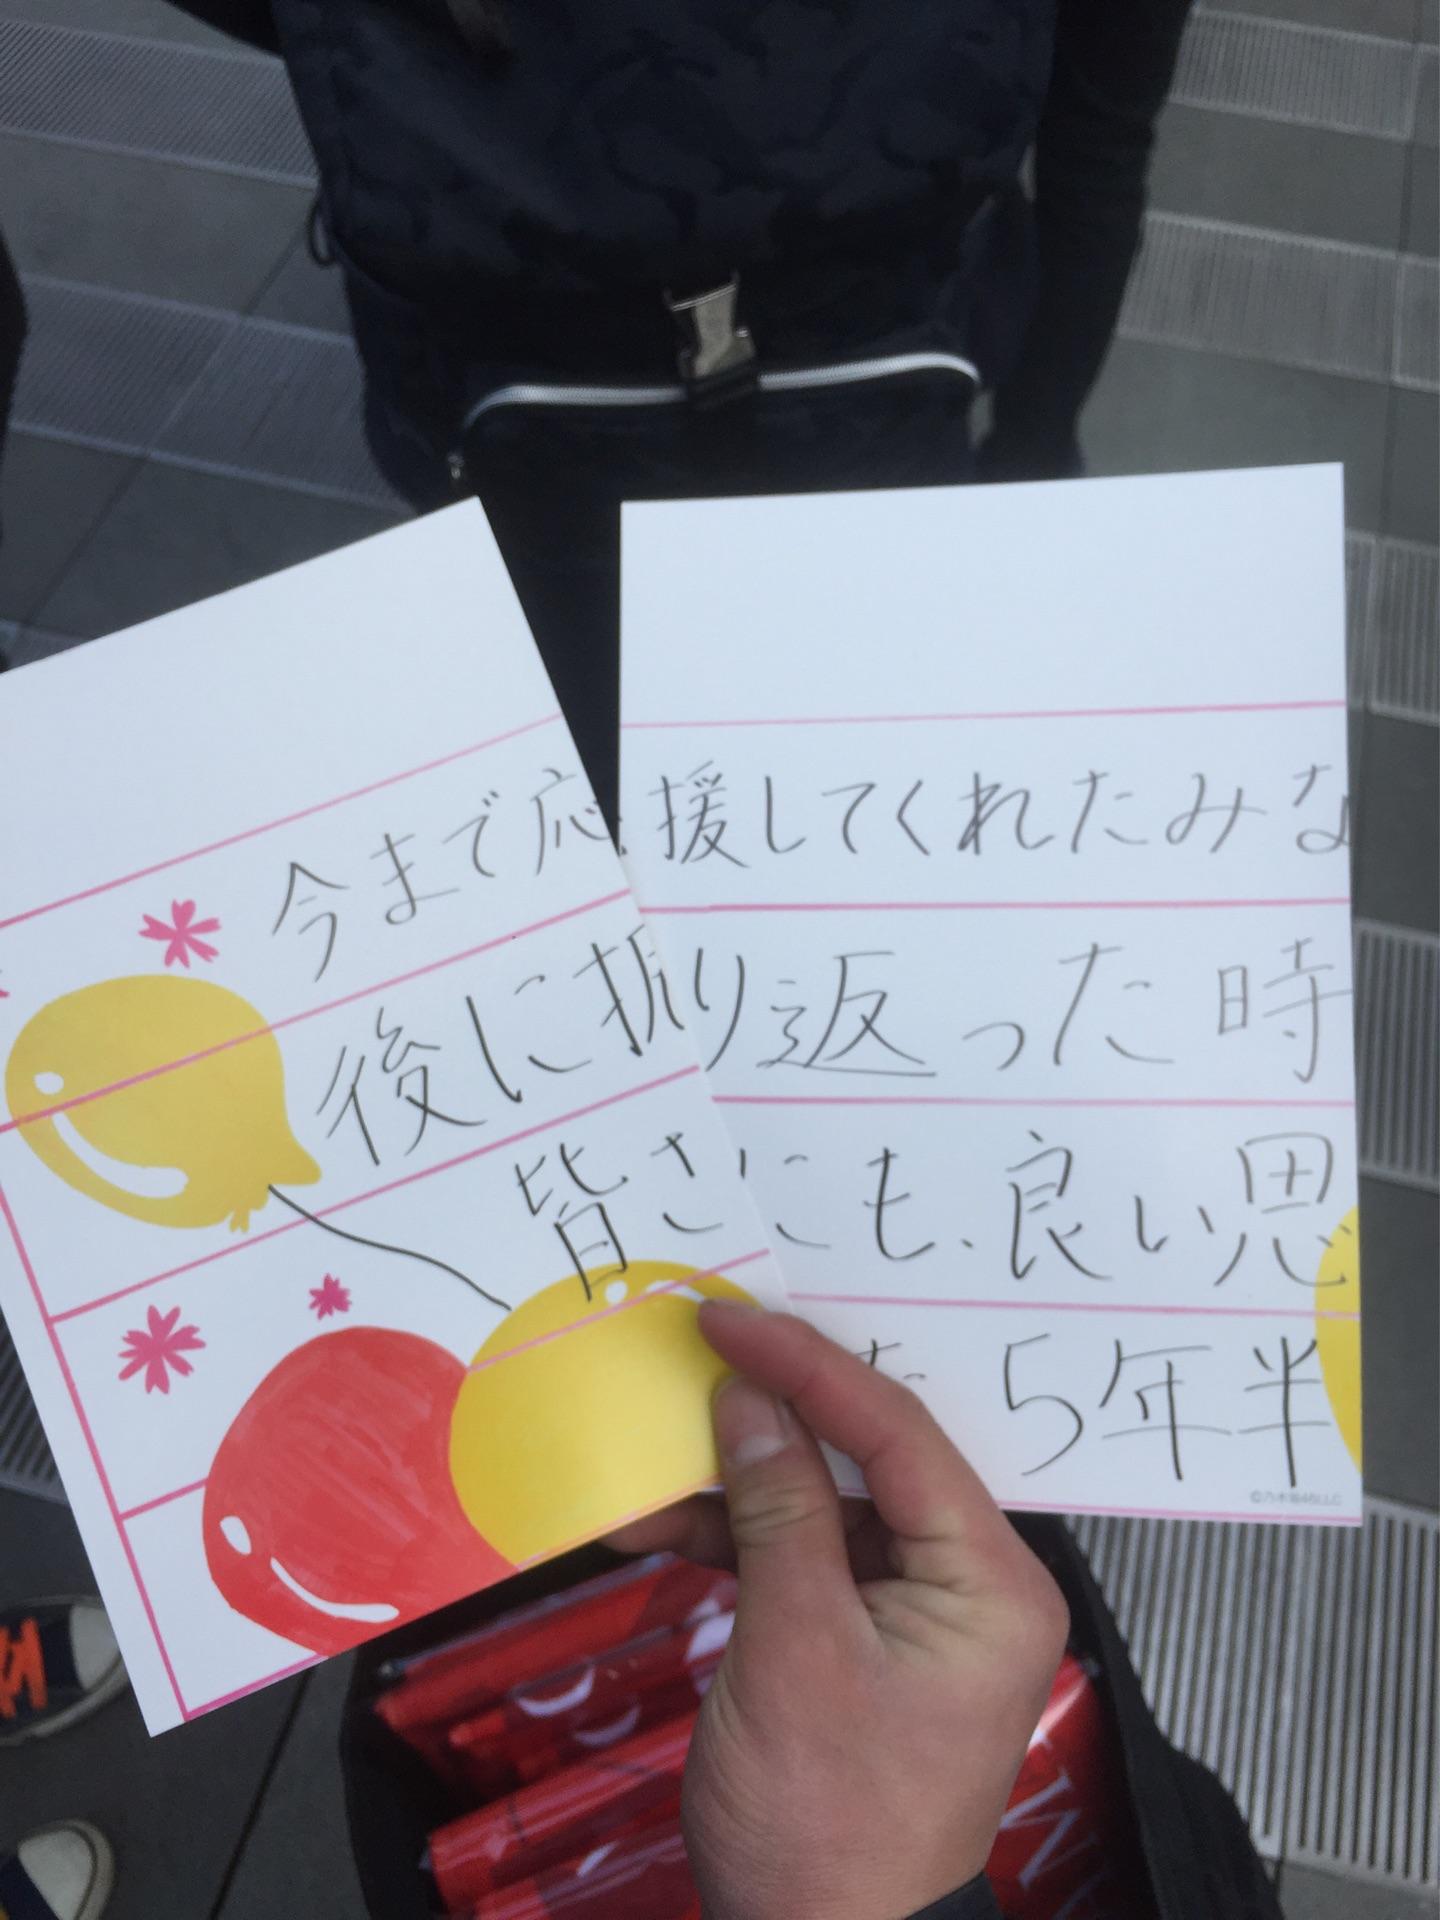 今まで応援してくれたみな
後に振り返った時
皆さにも、良い思
た 5年半
©乃木坂46LLC